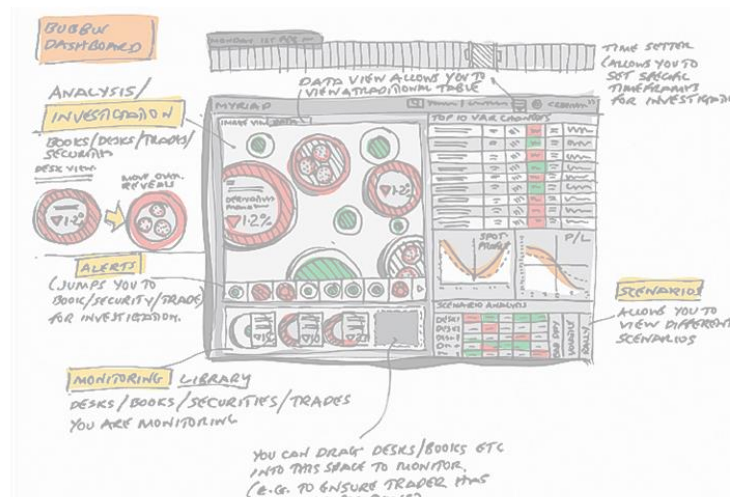 BUBBLE
DASHBOARD
TIME SETTER
(ALLOWS YOU TO
SET SPECIAL
TIMEFRAMES
FOR INVESTIGATION
DATA VIEW ALLOWS YOU TO
VIEW A TRADITIONAL TABLE
ANALYSIS/
INVESTIGATION
BOOKS/DESKS/TRADES/
SECURITIES
DESK VIEW
MOVE OVER
REVEALS
1.2%
MYRIAD
TOP 10 VAR CHANGES
IMAGE VIEW DATA
DERIVATIVES
1.2%
1.2
SPOT
P/L
ALERTS
(JUMPS YOU TO
BOOK/SECURITY/TRADE)
FOR INVESTIGATION.
SCENARIO ANALYSIS
DESK 1
DESK 2
BAD DAY
VOLATILE
RALLY
SCENARIOS
ALLOWS YOU TO
VIEW DIFFERENT
SCENARIOS
MONITORING LIBRARY
DESKS/BOOKS/SECURITIES/TRADES
YOU ARE MONITORING
YOU CAN DRAG DESKS/BOOKS ETC
INTO THIS SPACE TO MONITOR.
(E.G. TO ENSURE TRADER HAS